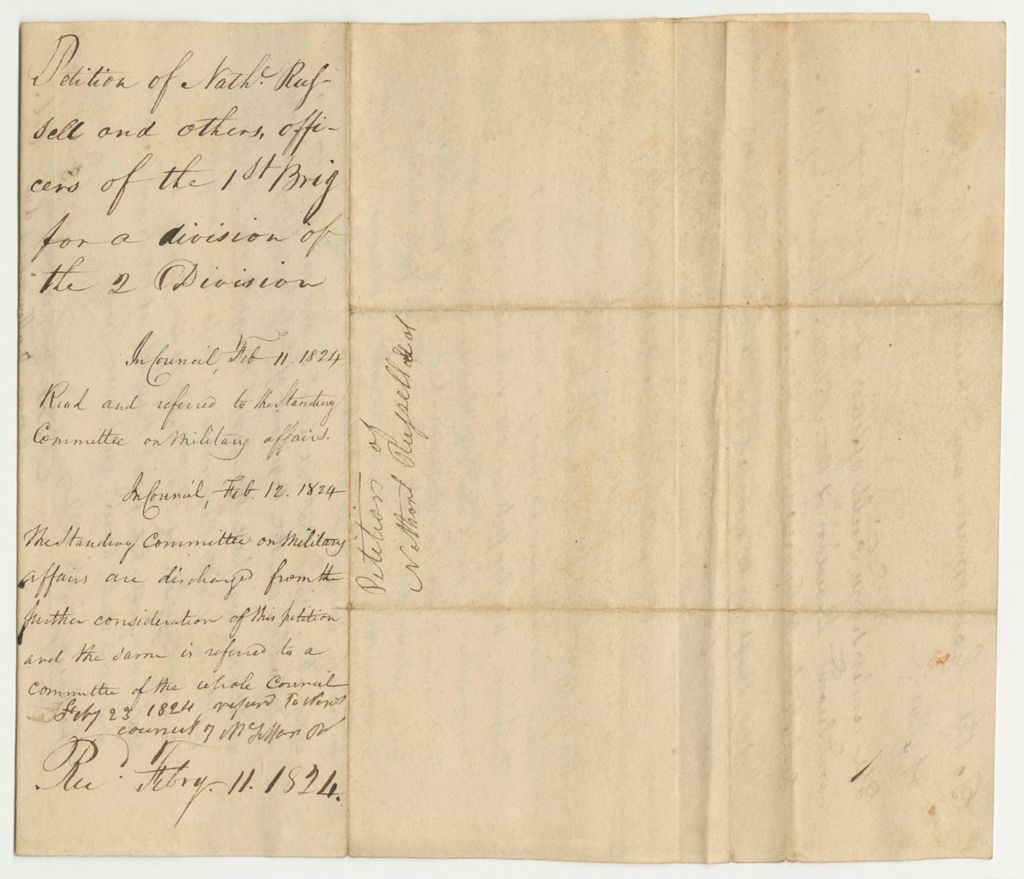 Petition of Nathl. Rus-
sell and others, offi-
cers of the 1st Brig
for a division of
the 2 Division
In Council, Feb 11. 1824
Read and referred to the Standing
Committee on Military affairs.
In Council, Feb. 12. 1824
The Standing Committee on Military
affairs are discharged from the
further consideration of this petition
and the same is referred to a
committee of the whole Council
Feby 23 1824
Recd. Febry. 11. 1824.
Petition of
Nathanl Russell & al